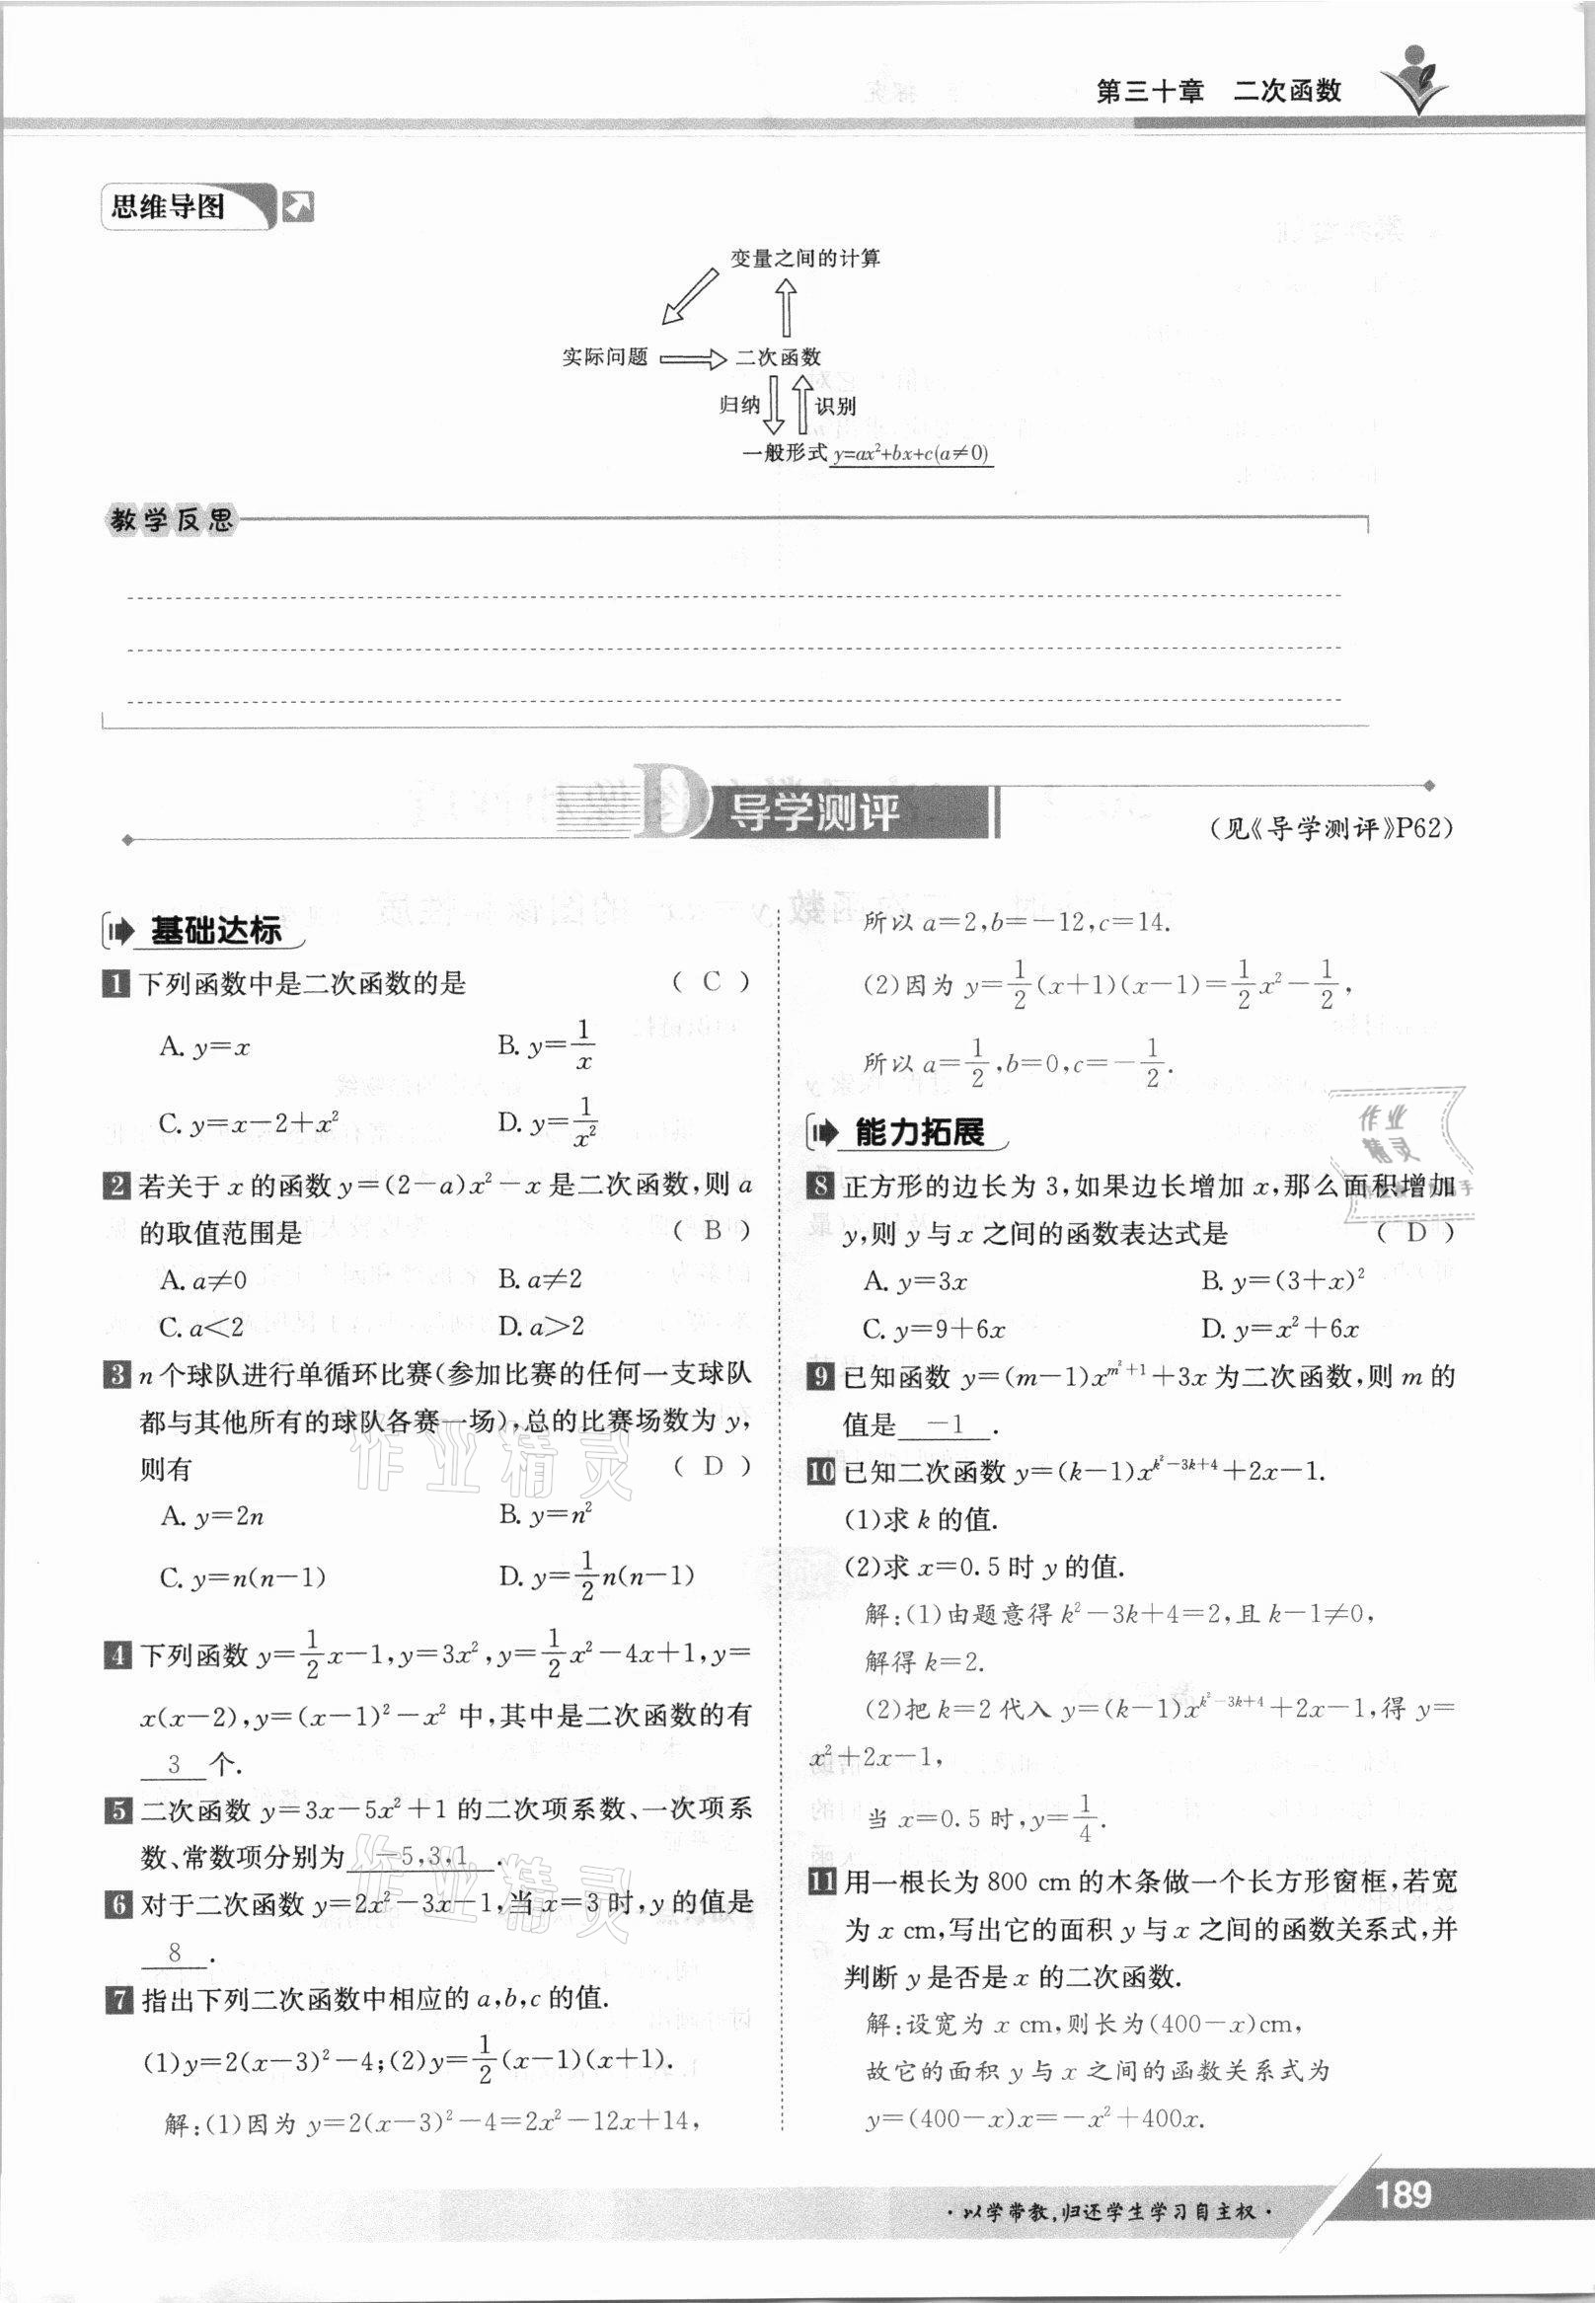 第三十章 二次函数
思维导图
变量之间的计算
实际问题 二次函数
归纳 识别
一般形式 y=ax²+bx+c(a≠0)
教学反思
D 导学测评
(见《导学测评》P62)
基础达标
1 下列函数中是二次函数的是 ( C )
A. y=x B. y=1/x
C. y=x-2+x² D. y=1/x²
2 若关于 x 的函数 y=(2-a)x²-x 是二次函数,则 a
的取值范围是 ( B )
A. a≠0 B. a≠2
C. a<2 D. a>2
3 n 个球队进行单循环比赛(参加比赛的任何一支球队
都与其他所有的球队各赛一场),总的比赛场数为 y,
则有 ( D )
A. y=2n B. y=n²
C. y=n(n-1) D. y=1/2n(n-1)
4 下列函数 y=1/2x-1,y=3x²,y=1/2x²-4x+1,y=
x(x-2),y=(x-1)²-x² 中,其中是二次函数的有
3 个.
5 二次函数 y=3x-5x²+1 的二次项系数、一次项系
数、常数项分别为 -5,3,1 .
6 对于二次函数 y=2x²-3x-1,当 x=3 时,y 的值是
8 .
7 指出下列二次函数中相应的 a,b,c 的值.
(1)y=2(x-3)²-4;(2)y=1/2(x-1)(x+1).
解:(1)因为 y=2(x-3)²-4=2x²-12x+14,
所以 a=2,b=-12,c=14.
(2)因为 y=1/2(x+1)(x-1)=1/2x²-1/2,
所以 a=1/2,b=0,c=-1/2.
能力拓展
8 正方形的边长为 3,如果边长增加 x,那么面积增加
y,则 y 与 x 之间的函数表达式是 ( D )
A. y=3x B. y=(3+x)²
C. y=9+6x D. y=x²+6x
9 已知函数 y=(m-1)x^(m²+1)+3x 为二次函数,则 m 的
值是 -1 .
10 已知二次函数 y=(k-1)x^(k²-3k+4)+2x-1.
(1)求 k 的值.
(2)求 x=0.5 时 y 的值.
解:(1)由题意得 k²-3k+4=2,且 k-1≠0,
解得 k=2.
(2)把 k=2 代入 y=(k-1)x^(k²-3k+4)+2x-1,得 y=
x²+2x-1,
当 x=0.5 时,y=1/4.
11 用一根长为 800 cm 的木条做一个长方形窗框,若宽
为 x cm,写出它的面积 y 与 x 之间的函数关系式,并
判断 y 是否是 x 的二次函数.
解:设宽为 x cm,则长为(400-x)cm,
故它的面积 y 与 x 之间的函数关系式为
y=(400-x)x=-x²+400x.
作业
精灵
作业精灵
作业精灵
·以学带教,归还学生学习自主权·
189